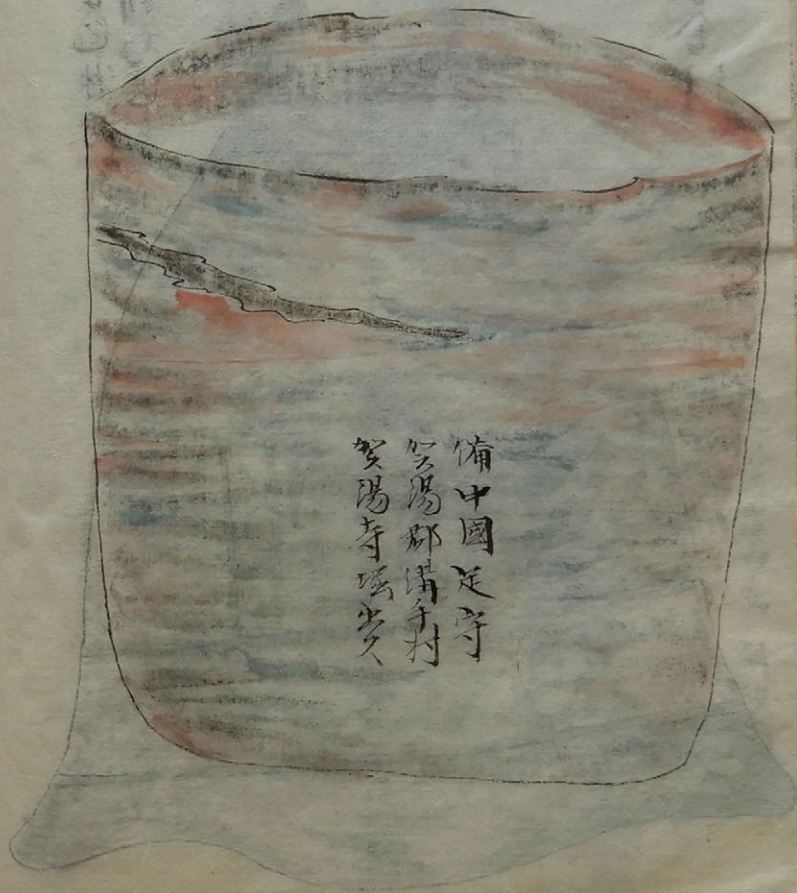 備中國足守
賀湯郡溝手村
賀湯寺堀出ス